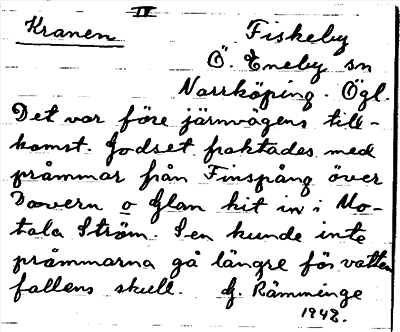 IV
Kranen
Fiskeby
Ö. Eneby sn
Norrköping. Ögl.
Det var före järnvägens till-
komst. Godset fraktades med
pråmmar från Finspång över
Dovern o Glan hit in i Mo-
tala Ström. Sen kunde inte
pråmmarna gå längre för vatten
fallens skull. G. Rämminge
1948.